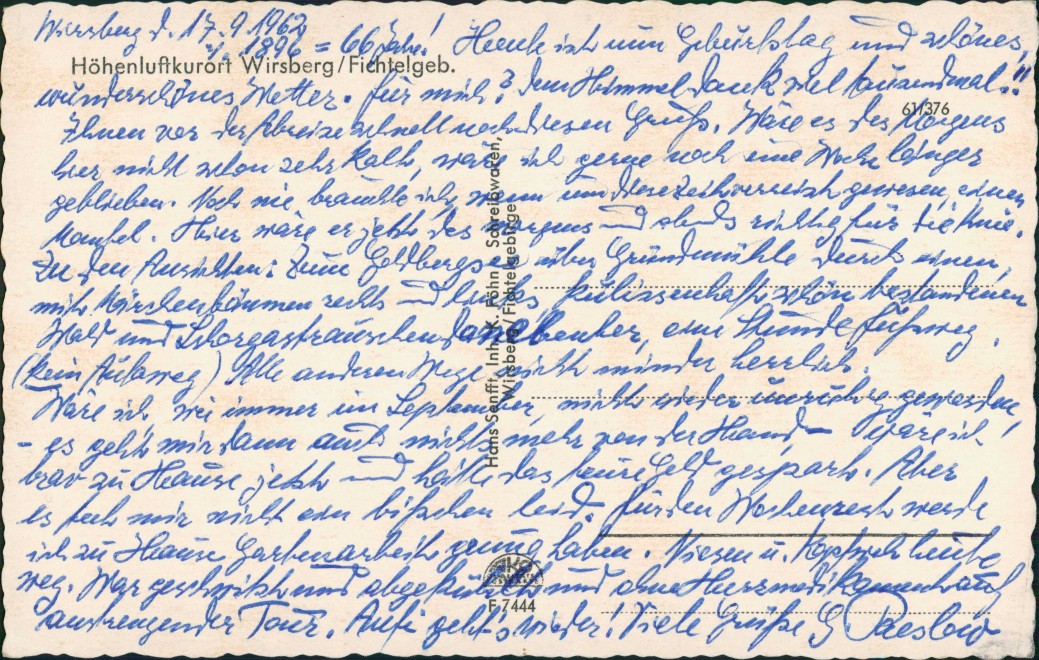 Wirsberg d. 17.9.1962
1896 = 66 Jahre! Heute ist nun Geburtstag und schönes,
Höhenluftkurort Wirsberg/Fichtelgeb.
wunderschönes Wetter. Für mich? dem Himmel dank viel tausendmal!!
611/376
Ihnen vor der Abreise schnell noch diesen Gruß. Wäre es des Morgens
hier nicht schon sehr kalt, wäre ich gerne noch eine Woche länger
geblieben. Noch nie brauchte ich, wenn um diese Zeit verreist gewesen, einen
Mantel. Hier wäre er jetzt des morgens und abends richtig für die Knie.
Zu den Ansichten: Zum Goldbergsee über Gründmühle durch einen,
mit Kirschenbäumen rechts und links kulissenhaft schön bestandenen
Wald und Schorgastrauschen daneben her, eine Stunde Fußweg.
(kein Aufweg) Alle anderen Wege nicht minder herrlich.
Wäre ich, wie immer im September, nicht wieder unruhig geworden,
- es geht mir dann auch nichts mehr von der Hand - wäre ich
brav zu Hause jetzt und hätte das teure Geld gespart. Aber
es tut mir nicht ein bißchen leid. Für den Wochenrest werde
ich zu Hause Gartenarbeit genug haben. Niesen u. Kopfweh heute
weg. War geschwitzt und abgekühlt und ohne Herzmedikament auf
anstrengender Tour. Aufi geht's wieder! Viele Grüße G. Paeslow
Hans Senfft, Inh. K. Föhn Schreibwaren,
Wirsberg / Fichtelgebirge
F 7444